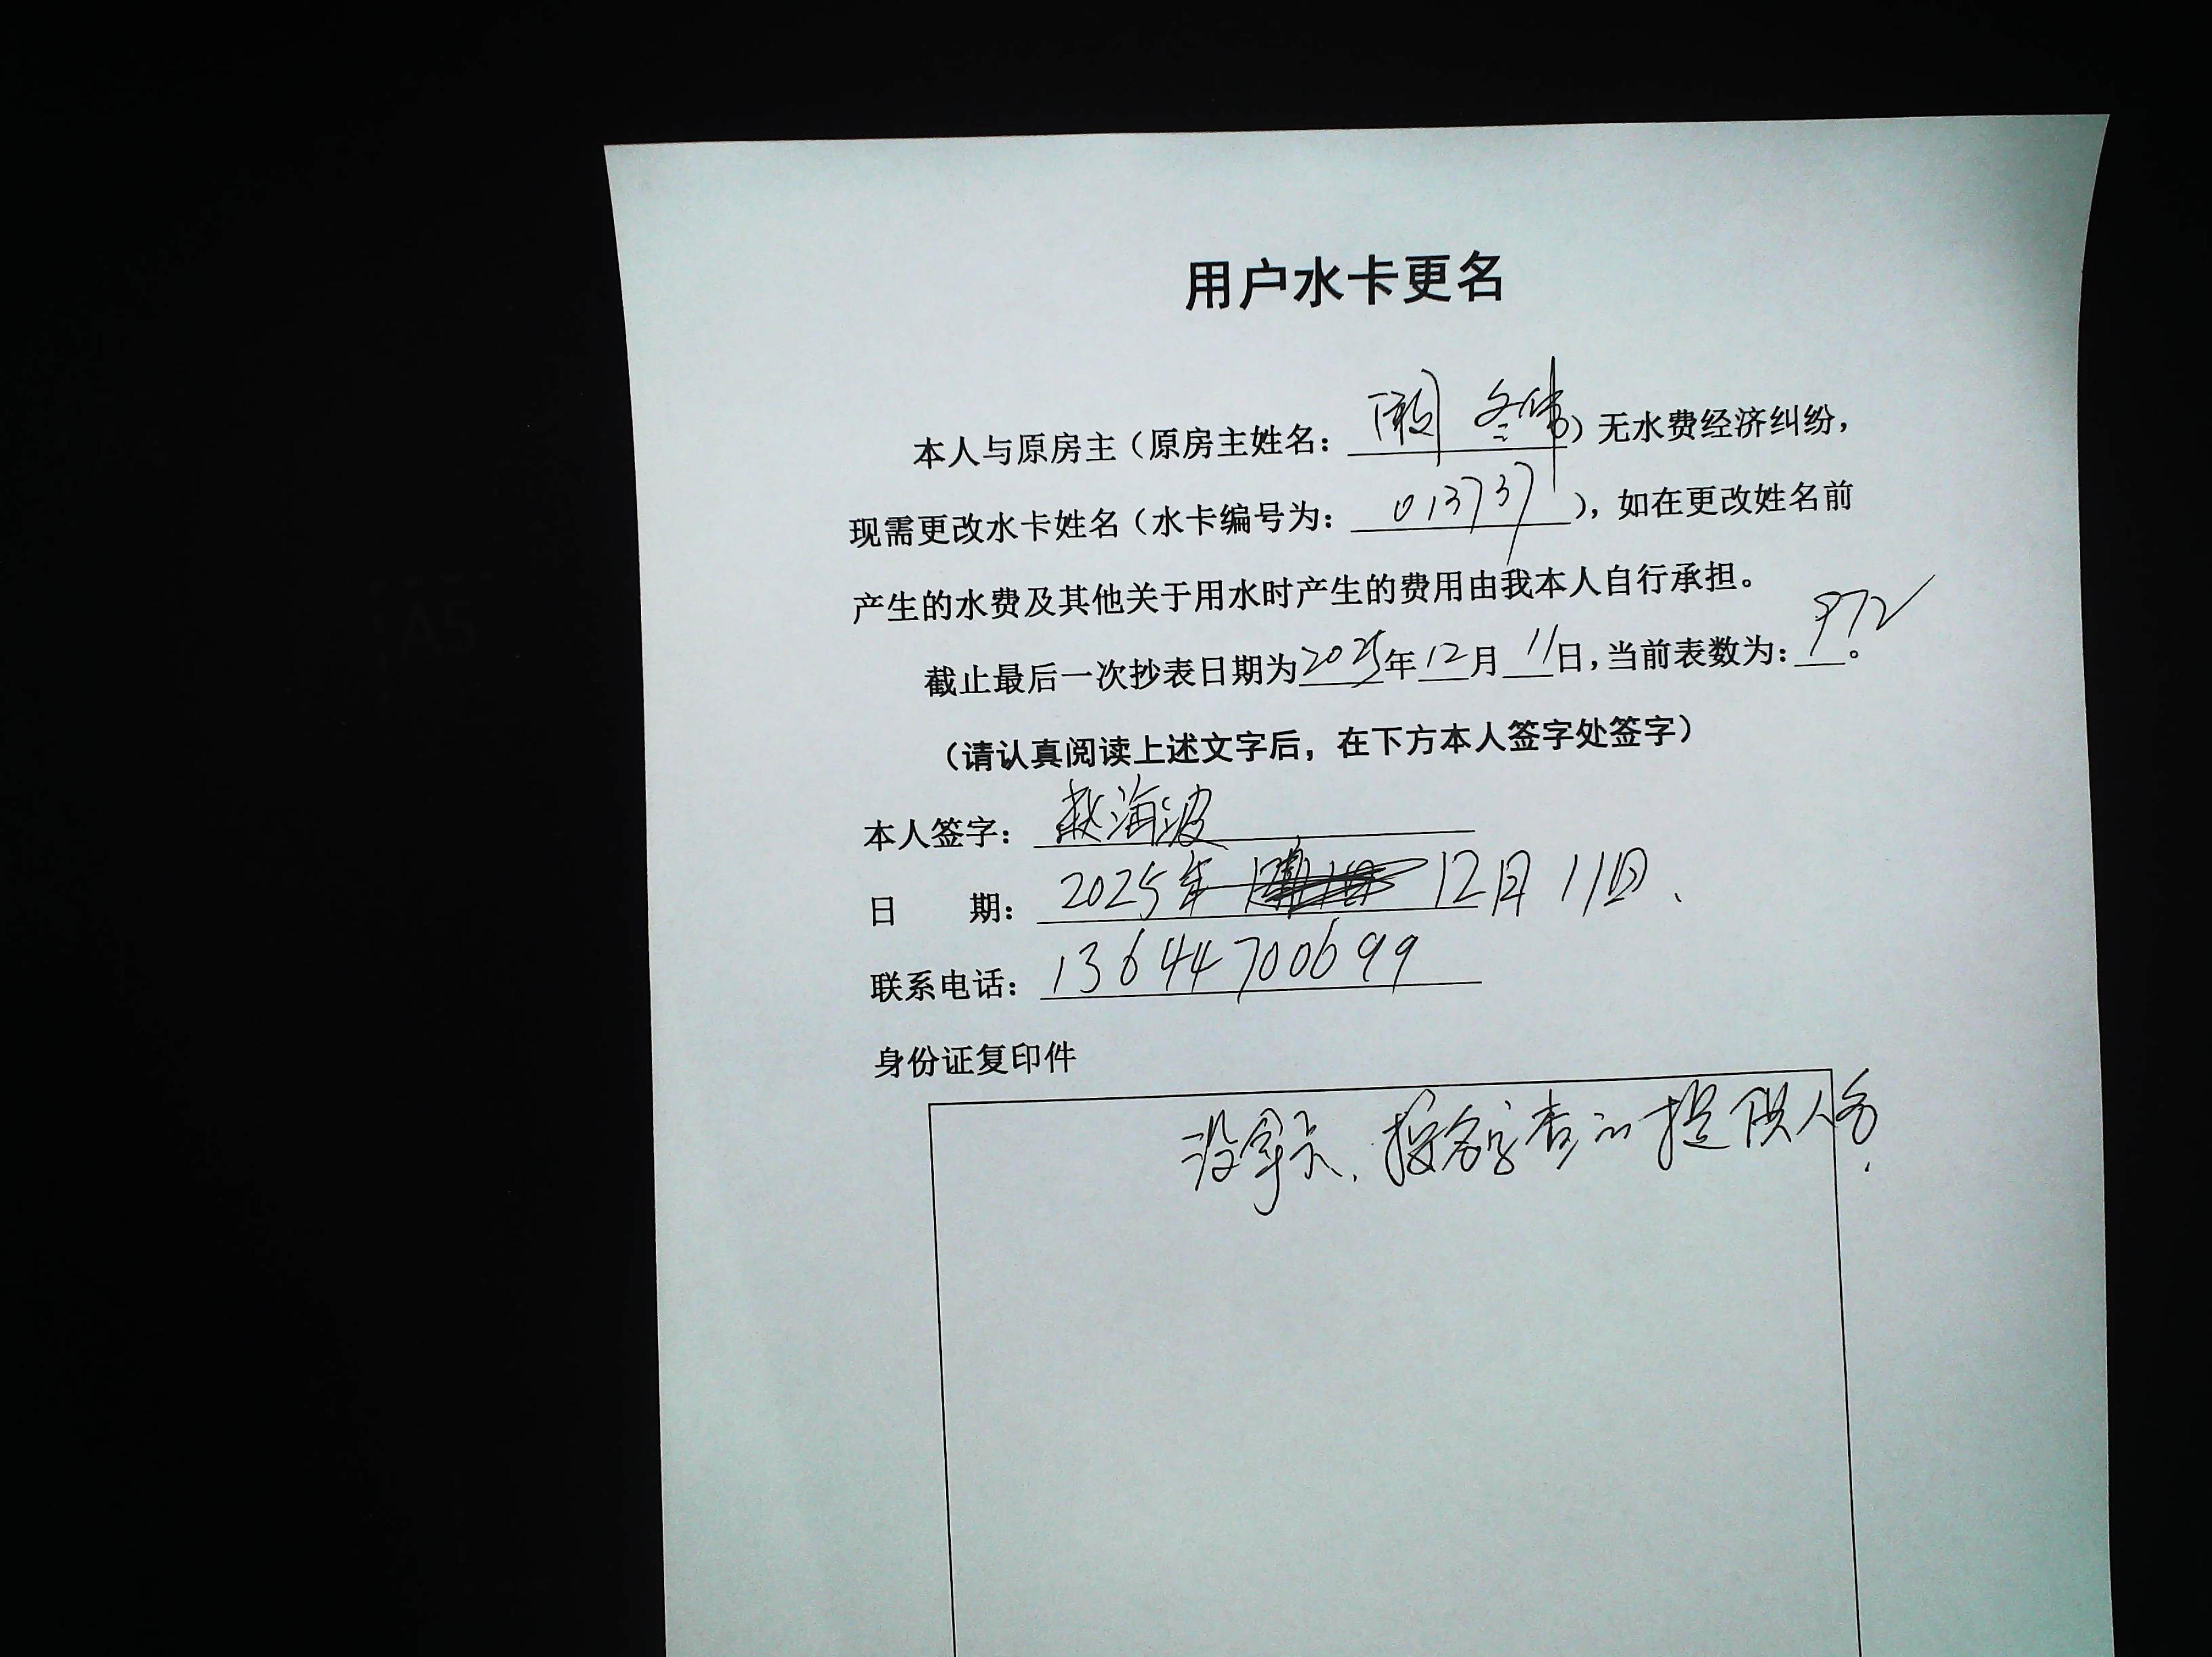 用户水卡更名
本人与原房主（原房主姓名：冬伟）无水费经济纠纷，
现需更改水卡姓名（水卡编号为：013737），如在更改姓名前
产生的水费及其他关于用水时产生的费用由我本人自行承担。
截止最后一次抄表日期为2025年12月11日，当前表数为：972。
（请认真阅读上述文字后，在下方本人签字处签字）
本人签字：赵海波
日 期：2025年 12月11日、
联系电话：13644700699
身份证复印件
没拿卡、按名字查的提供人名.
A5